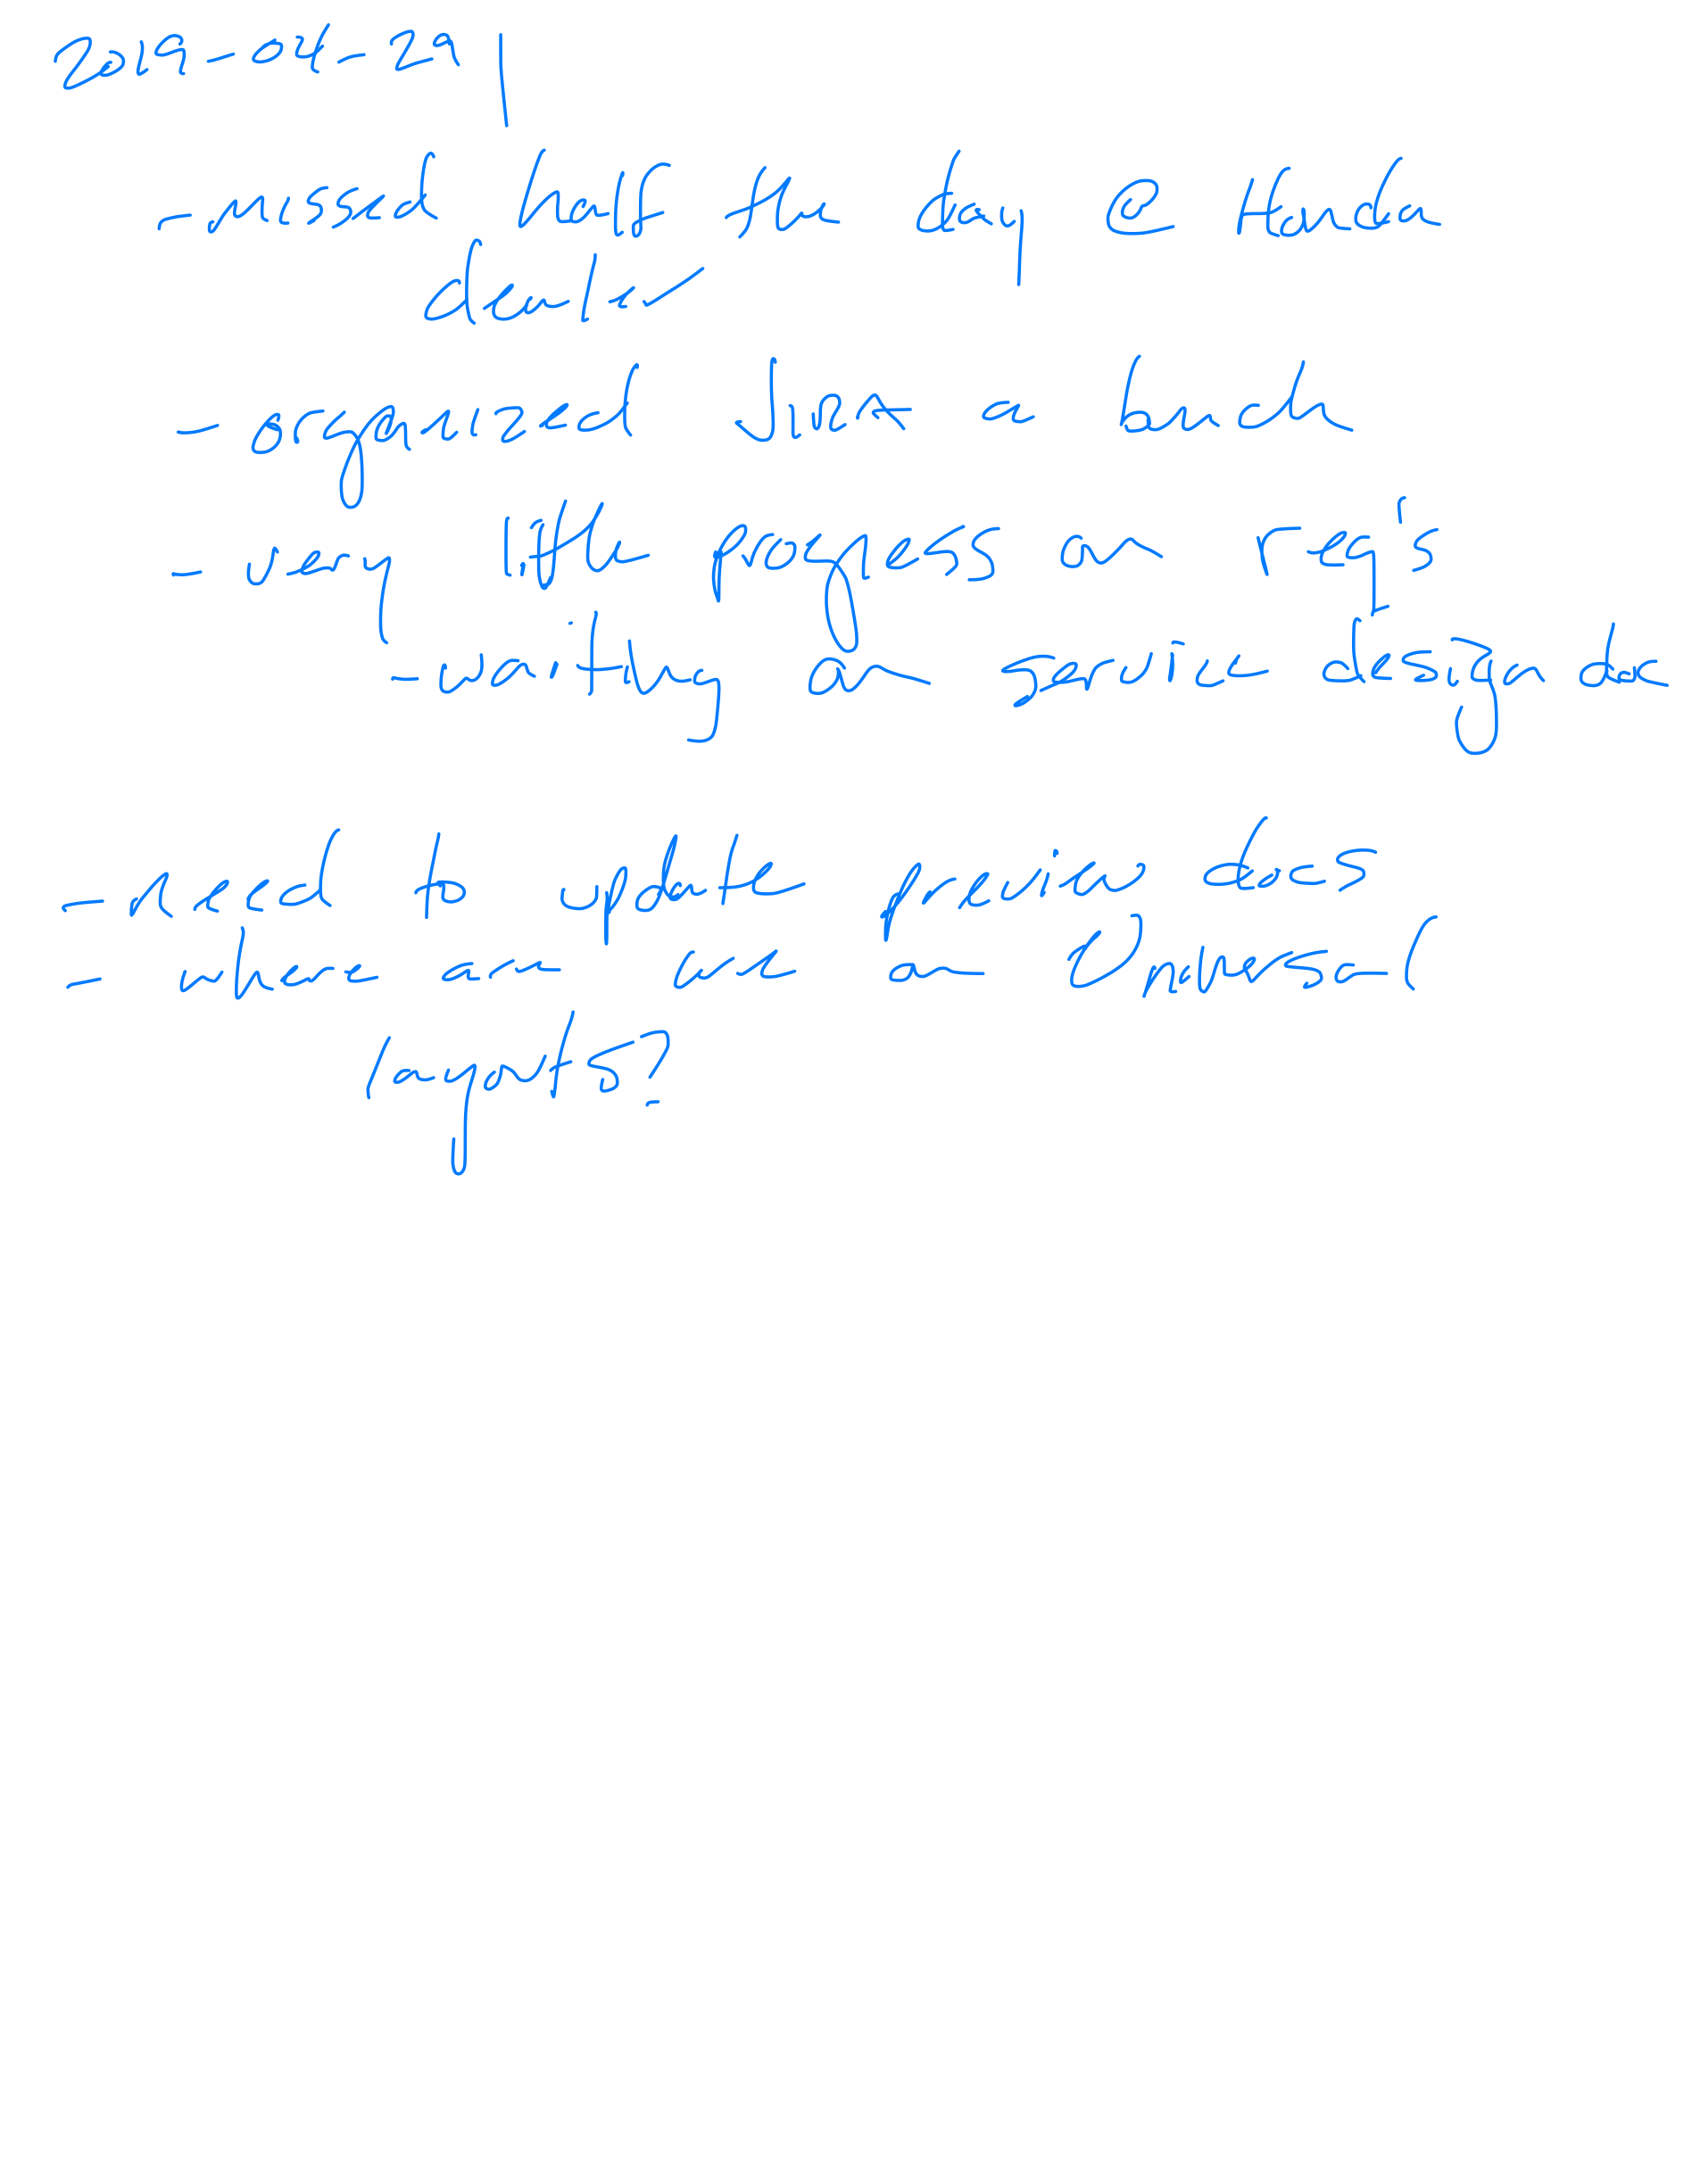 2019-04-29
- missed half the day @ Honda
dealer
- organized Jira a bunch
- very little progress on req's
- waiting on service design doc
- need to update previous docs
- where are we on Universal
Layouts?